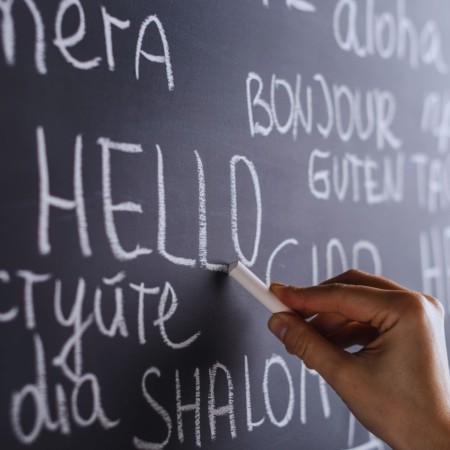 mera
aloha
BONJOUR
HELLO
GUTEN TA
CIAO
ствуйте
dia
SHALOM